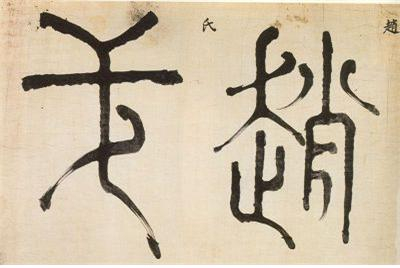 趙
趙
氏
氏